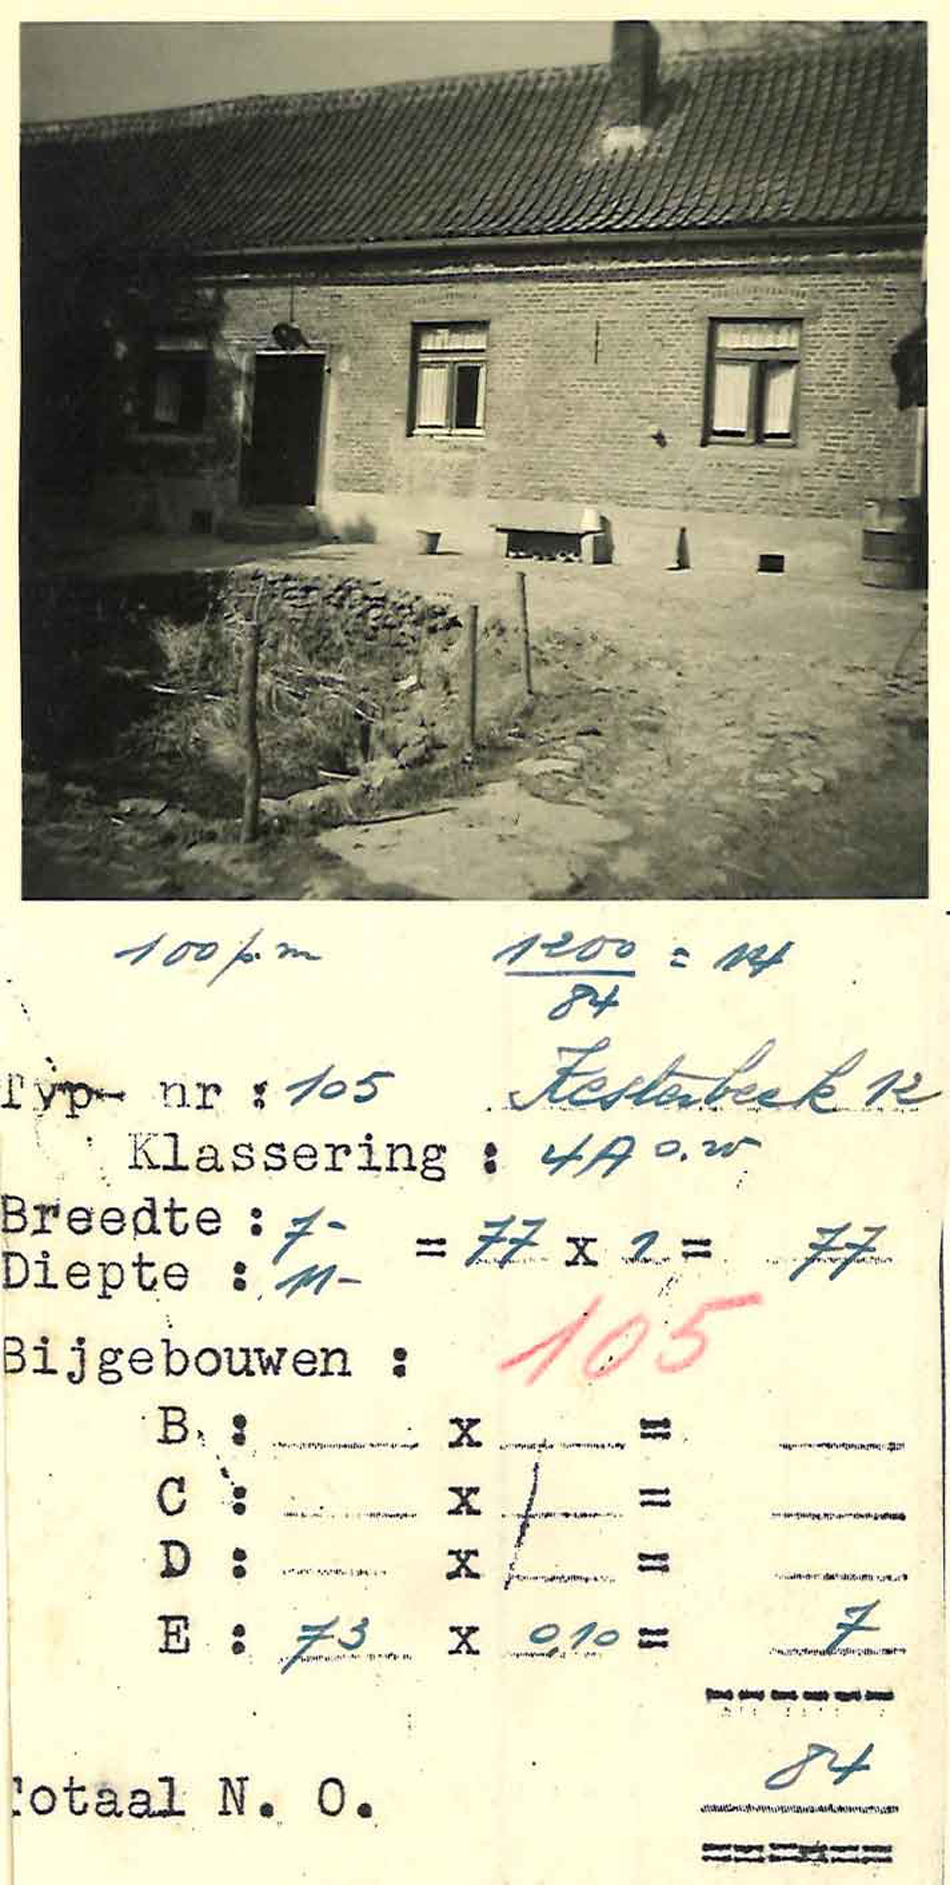 100 p.m 1200 / 84 = 14
Typ- nr : 105 Kesterbeek 12
Klassering : 4A o.w
Breedte : 7-
= 77 x 1 = 77
Diepte : 11-
Bijgebouwen : 105
B. : x =
C : x =
D : x =
E : 73 x 0,10 = 7
84
Totaal N. O.